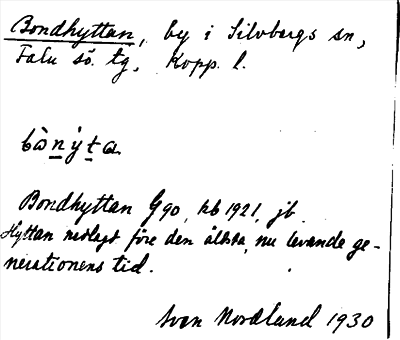 Bondhyttan, by i Silvbergs sn,
Falu sö. tg, Kopp. l.
bònýta
Bondhyttan G90, kb 1921, jb.
Hyttan nedlagt före den äldsta, nu levande ge-
nerationens tid.
Sven Nordlund 1930